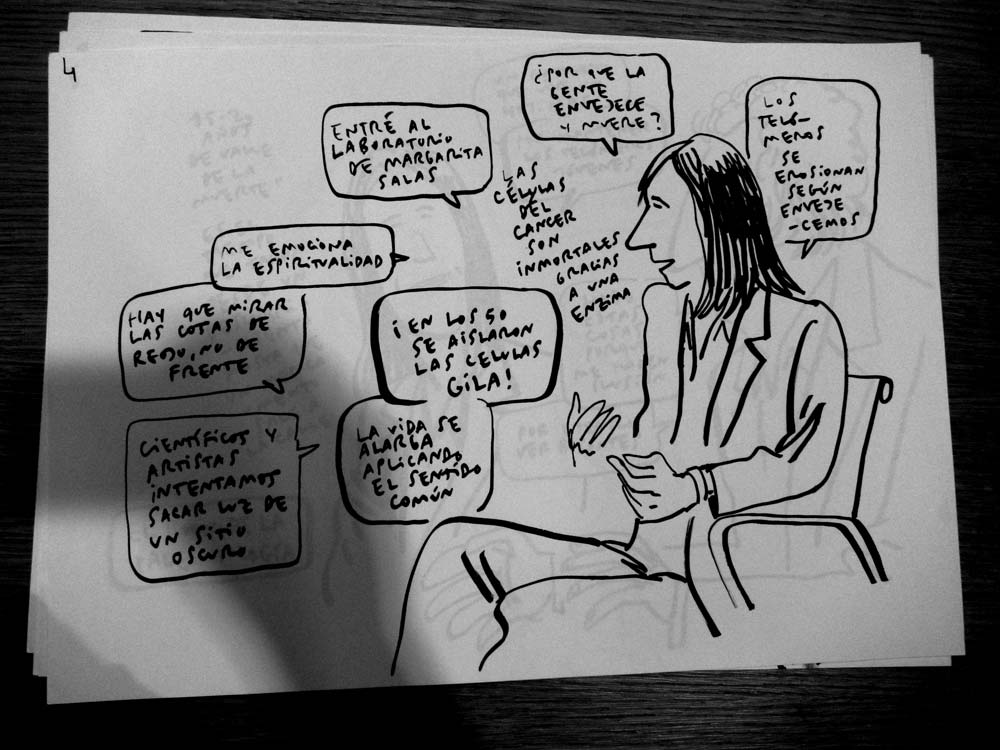 4
¿POR QUE LA
GENTE
ENVEJECE
Y MUERE?
ENTRÉ AL
LABORATORIO
DE MARGARITA
SALAS
LOS
TELÓ-
MEROS
SE
EROSIONAN
SEGÚN
ENVEJE
-CEMOS
LAS
CÉLULAS
DEL
CANCER
SON
INMORTALES
GRACIAS
A UNA
ENZIMA
ME EMOCIONA
LA ESPIRITUALIDAD
HAY QUE MIRAR
LAS COSAS DE
REOJO, NO DE
FRENTE
¡EN LOS 50
SE AISLARON
LAS CELULAS
GILA!
CIENTÍFICOS Y
ARTISTAS
INTENTAMOS
SACAR LUZ DE
UN SITIO
OSCURO
LA VIDA SE
ALARGA
APLICANDO
EL SENTIDO
COMÚN